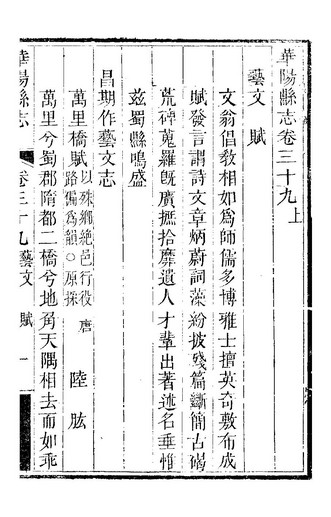 華陽縣志卷三十九上
藝文 賦
文翁倡敎相如爲師儒多博雅士擅英奇敷布成
賦發言謂詩文章炳蔚詞藻紛披殘篇斷簡古碣
荒碑蒐羅旣廣摭拾靡遺人才輩出著述名垂惟
茲蜀縣鳴盛
昌期作藝文志
萬里橋賦 以殊鄉絶邑行役路偏爲韻○原採 唐 陸肱
萬里兮蜀郡隋都二橋兮地角天隅相去而如乖
華陽縣志 卷三十九 藝文 賦 一